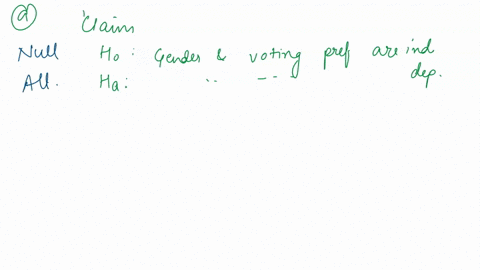 (a) Claim
Null Ho: Gender & voting pref are ind
All. Ha: " -- " dep.